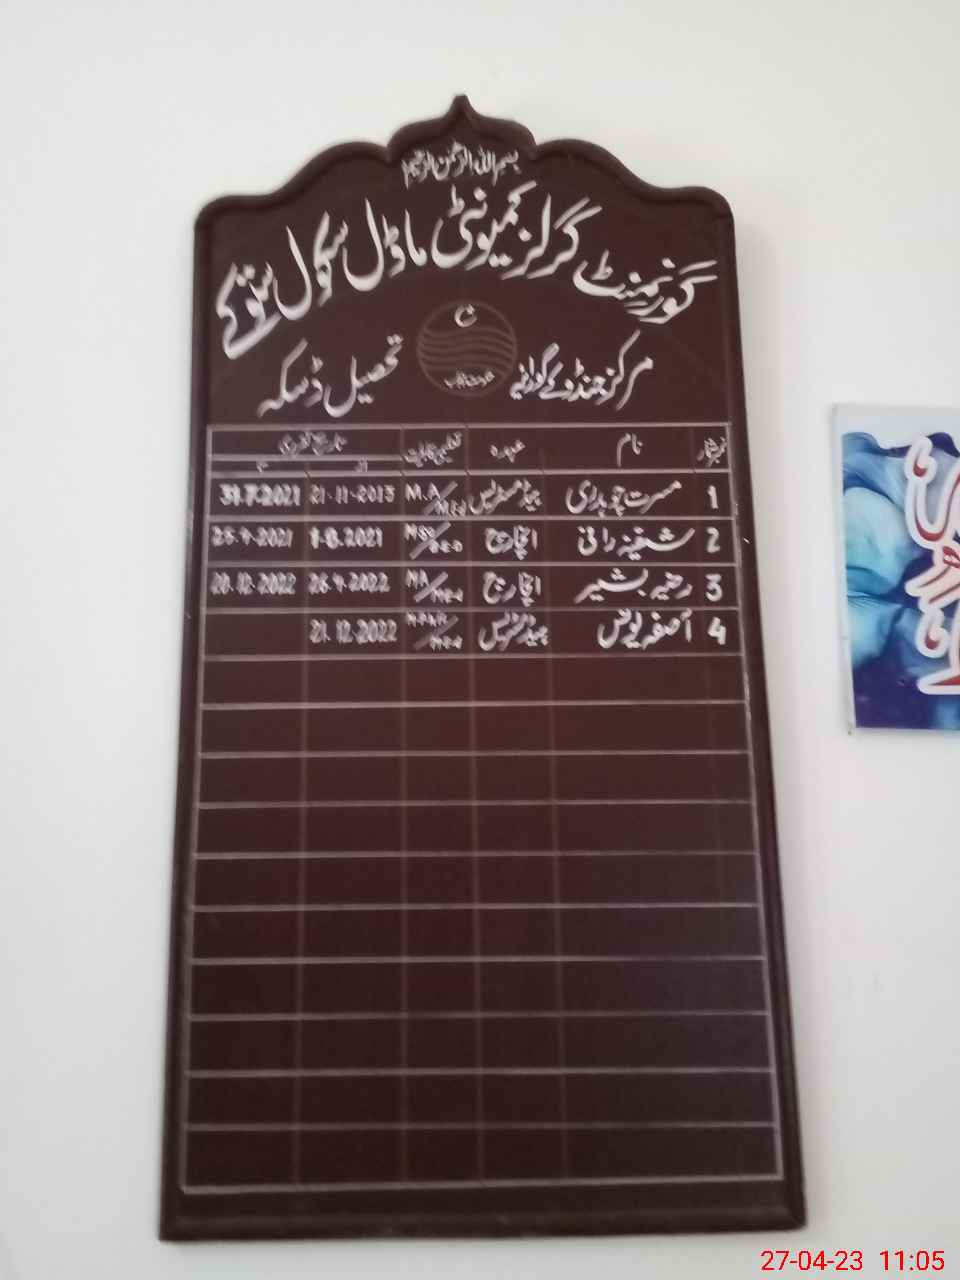 بسم اللہ الرحمٰن الرحیم
گورنمنٹ گرلز کمیونٹی ماڈل سکول ستوکے
مرکز جنڈوکے گورائیہ تحصیل ڈسکہ
نمبر شمار نام عہدہ تعلیمی قابلیت تاریخ تقرری
از تا
1 مسرت چوہدری ہیڈمسٹریس M.A/M.Ed 21-11-2013 31.7.2021
2 شفینہ رانی انچارج MSc/B.E.D 1-8.2021 25.4.2021
3 رضیہ بشیر انچارج MA/M.Ed 26.4.2022 20.12.2022
4 آصفہ یونس ہیڈمسٹریس M.Ed 21.12.2022
27-04-23 11:05